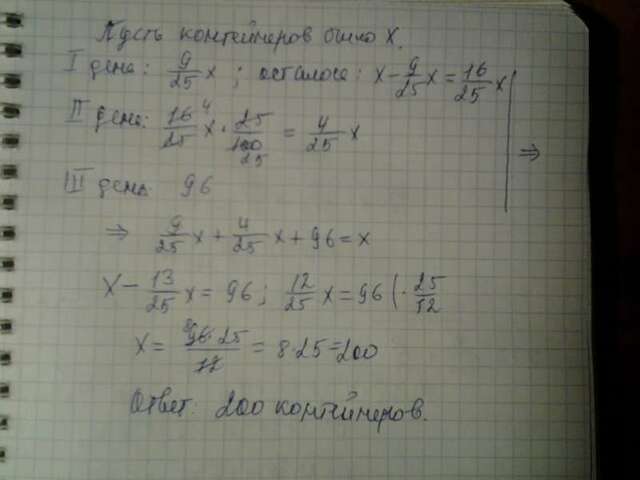 Пусть контейнеров было x.
I день: 9/25 x ; осталось: x - 9/25 x = 16/25 x
II день: 16/25 x · 25/100 = 4/25 x ⇒
III день 96
⇒ 9/25 x + 4/25 x + 96 = x
x - 13/25 x = 96; 12/25 x = 96 | · 25/12
x = 96·25/12 = 8·25 = 200
Ответ: 200 контейнеров.